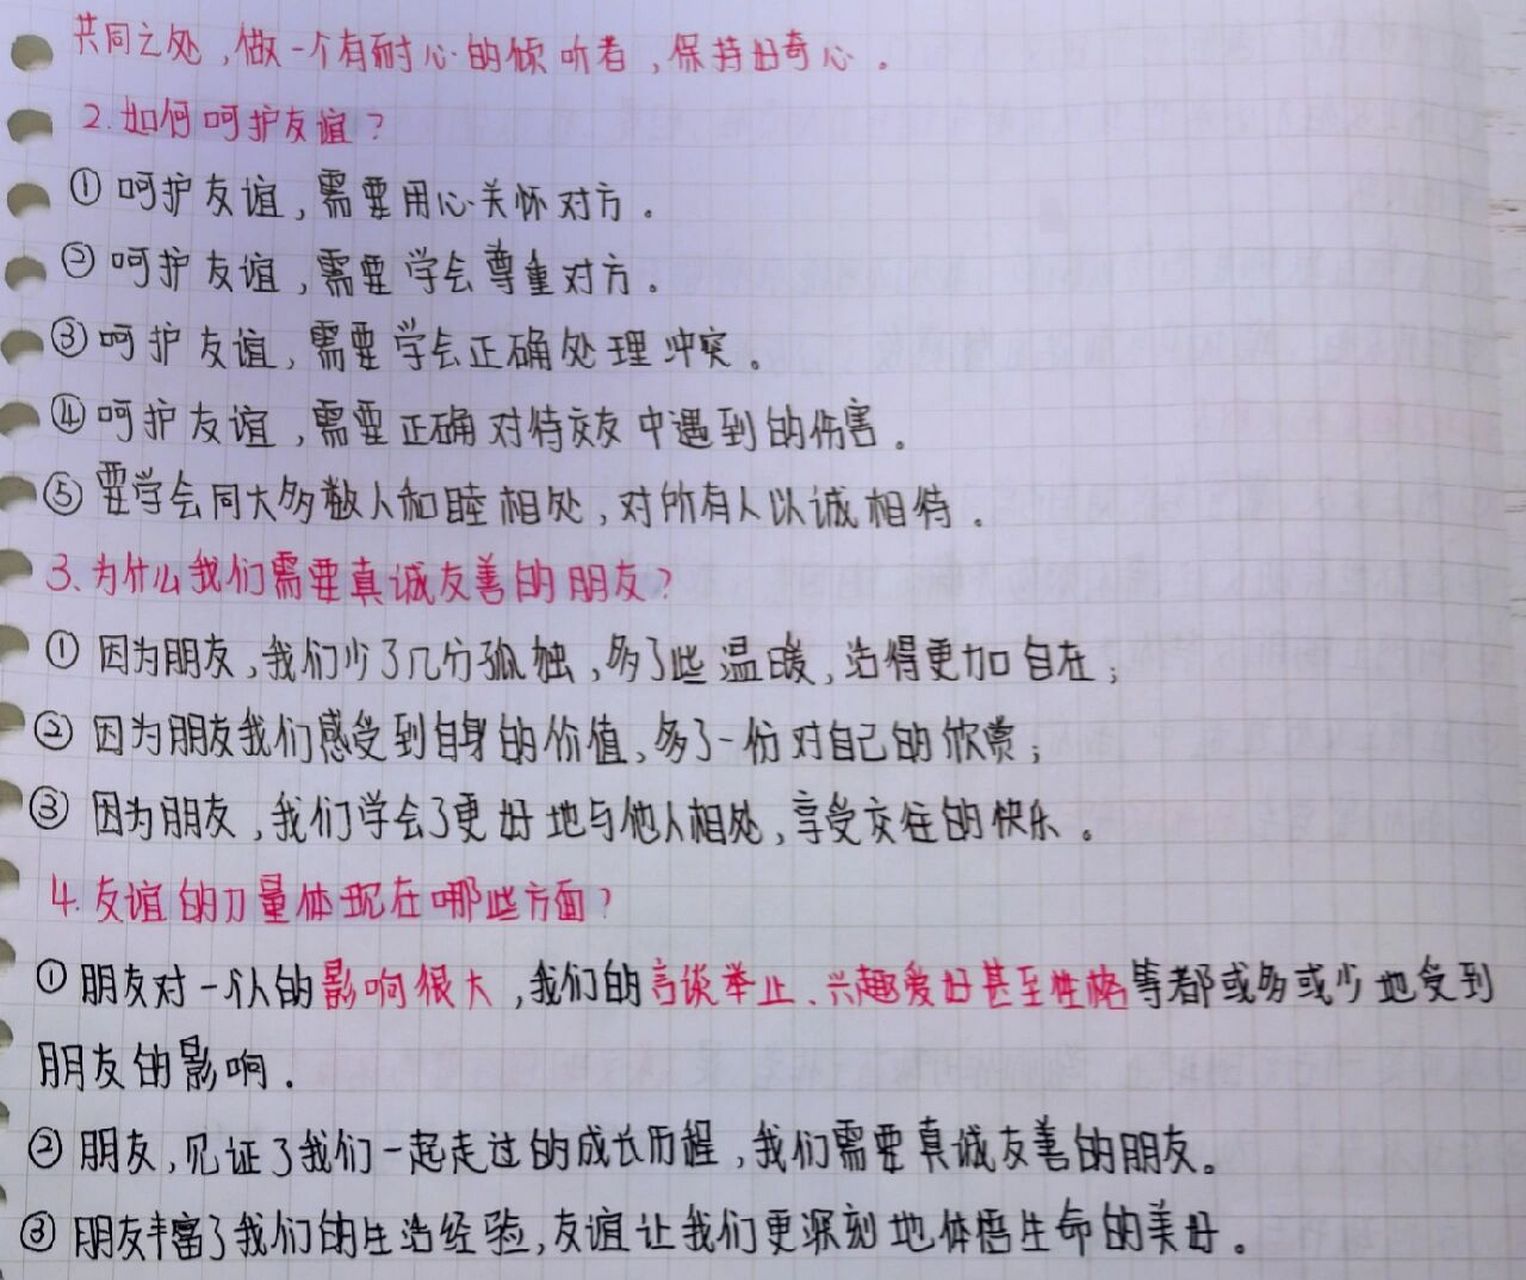 共同之处,做一个有耐心的倾听者,保持好奇心。
2.如何呵护友谊?
①呵护友谊,需要用心关怀对方。
②呵护友谊,需要学会尊重对方。
③呵护友谊,需要学会正确处理冲突。
④呵护友谊,需要正确对待交友中遇到的伤害。
⑤要学会同大多数人和睦相处,对所有人以诚相待。
3、为什么我们需要真诚友善的朋友?
①因为朋友,我们少了几分孤独,多了些温暖,活得更加自在;
②因为朋友我们感受到自身的价值,多了一份对自己的欣赏;
③因为朋友,我们学会了更好地与他人相处,享受交往的快乐。
4.友谊的力量体现在哪些方面?
①朋友对一个人的影响很大,我们的言谈举止、兴趣爱好甚至性格等都或多或少地受到
朋友的影响.
②朋友,见证了我们一起走过的成长历程,我们需要真诚友善的朋友。
③朋友丰富了我们的生活经验,友谊让我们更深刻地体悟生命的美好。